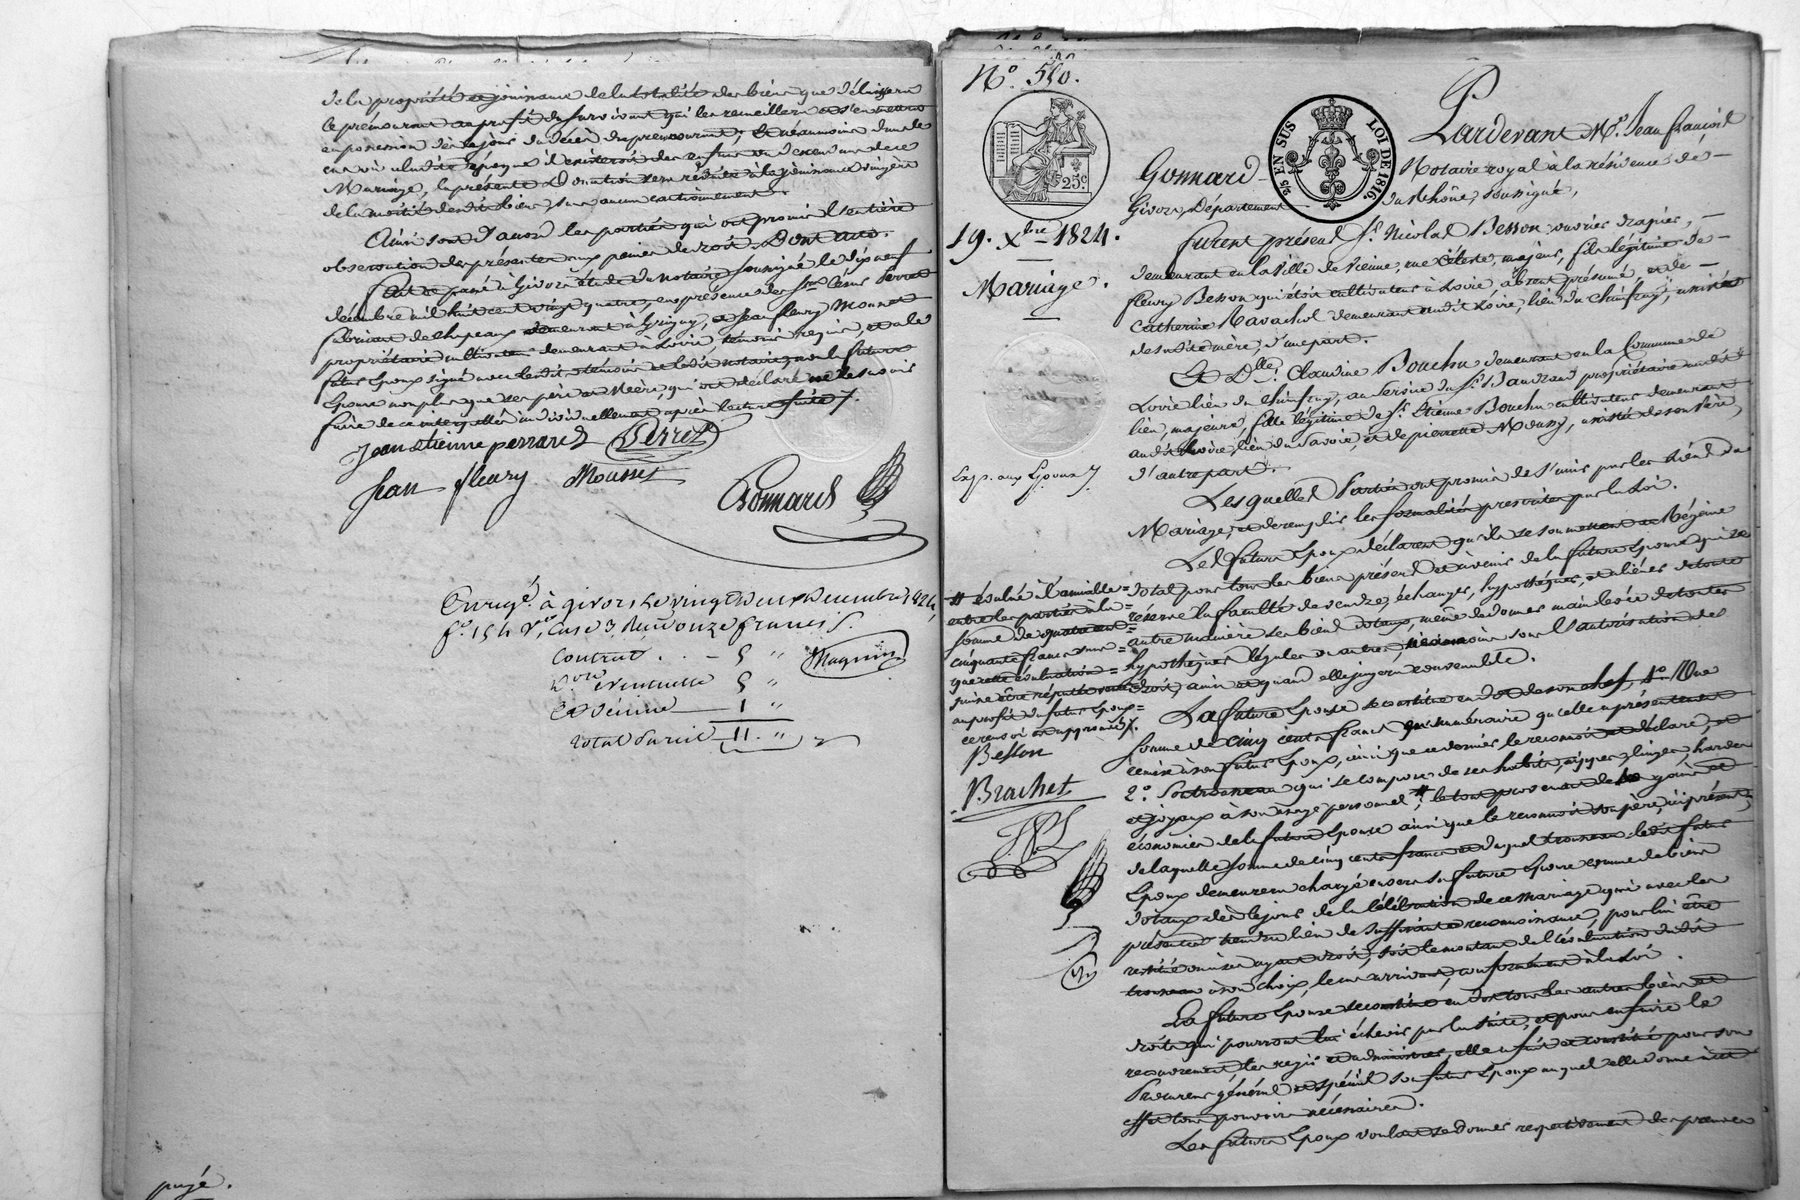 de la propriété et jouissance de la totalité des biens que délaissera
le prémourant au profit du survivant qui les recueillera et s'en mettra
en possession dès le jour du décès du prémourant; et néanmoins dans le
cas où à ladite époque il existerait des enfans ou descendans de ce
Mariage, la présente Donation sera réduite à la jouissance viagère
de la moitié desdits biens, sans aucun cautionnement.
Ainsi sont d'accord les parties qui ont promis l'entière
observation des présentes aux peines de droit. Dont acte.
Fait et passé à Givors étude du notaire soussigné le dix neuf
décembre mil huit cent vingt quatre, en présence de Srs César Perret
fabricant de chapeaux demeurant à Grigny, et Jean fleury Mousset
propriétaire cultivateur demeurant à Loire, témoins requis, et a le
futur Epoux signé avec lesdits témoins et ledit notaire, non la future
Epouse non plus que ses père et Mère, qui ont déclaré ne le savoir
faire de ce interpellés individuellement après lecture faite.
Jean Etienne perrard Perret
Jean fleury Mousset
Gonnard
Enregé. à givors le vingt deux Decembre 1824,
fo. 154 Vo, Case 3, Reçu onze francs
Contrat . . - 5 "
Don éventuelle 5 "
Et Décime 1 "
Total Pareil 11. "
Magnin
payé.
No. 510.
25c
25c EN SUS LOI DE 1816
19. Xbre 1824.
Mariage.
Exp. aux Epoux
Pardevant Me. Jean françois
Gonnard Notaire royal à la résidence de
Givors, Département du Rhône, soussigné,
furent présens Sr. Nicolas Besson ouvrier drapier,
demeurant en la ville de Vienne, rue Céleste, majeur, fils légitime de
fleury Besson qui était cultivateur à Loire, absent présumé, et de
Catherine Ravachol demeurant audit Loire, lieu du Chinfray, assisté
de sadite mère, d'une part.
Et Dlle. Claudine Bouchu, demeurant en la Commune de
Loire lieu du Chinfray, au service du Sr. Baudrand propriétaire audit
lieu, majeure, fille légitime de Sr. Etienne Bouchu cultivateur demeurant
audit Loire, lieu du Savoie, et de pierrette Moussy, assistée de son père,
d'autre part.
Lesquelles Parties ont promis de s'unir par les liens du
Mariage, et de remplir les formalités prescrites par la Loi.
Les futurs Epoux déclarent qu'ils se soumettent au Régime
Dotal pour tous les biens présens et à venir de la future Epouse qui se
réserve la faculté de vendre, échanger, hypothéquer, et aliéner de toute
autre manière ses biens dotaux, même de donner main levée de toutes
hypothèques légales ou autres, néanmoins sous l'autorisation de
droit, ainsi et quand elle jugera convenable.
La future Epouse se constitue en dot de son chef, 1o. Une
somme de cinq cents francs en numéraire qu'elle a présentement
remise à son futur Epoux, ainsi que ce dernier le reconnait et déclare, et
2o. Son trousseau qui se compose de ses habits, nippes, linges, hardes
et joyaux à son usage personnel # le tout provenant de ses gains et
économies de la future Epouse ainsi que le reconnoit son père, ici présent,
de laquelle somme de cinq cents francs et duquel trousseau ledit futur
Epoux demeurera chargé envers sa future Epouse comme de biens
dotaux dès le jour de la célébration de ce mariage qui avec les
présentes tiendra lieu de suffisante reconnoissance, pour lui être
restitué ou à ses ayant droit, soit le montant de l'évaluation dudit
trousseau à son choix, le cas arrivant, conformément à la Loi.
La future Epouse se constitue en dot tous les autres biens et
droits qui pourront lui échevir par la suite, et pour en faire le
recouvrement les régir et administrer, elle a fait et constitué pour son
Procureur général et spécial son futur Epoux auquel elle donne à cet
effet tous pouvoirs nécessaires.
Les futurs Epoux voulant se donner respectivement des preuves
# évalué à l'amiable
entre les parties à la
somme de quatre cent
cinquante francs sans
que cette évaluation
puisse être réputée vente
au profit du futur Epoux
ce renvoi est approuvé.
Besson
Brachet